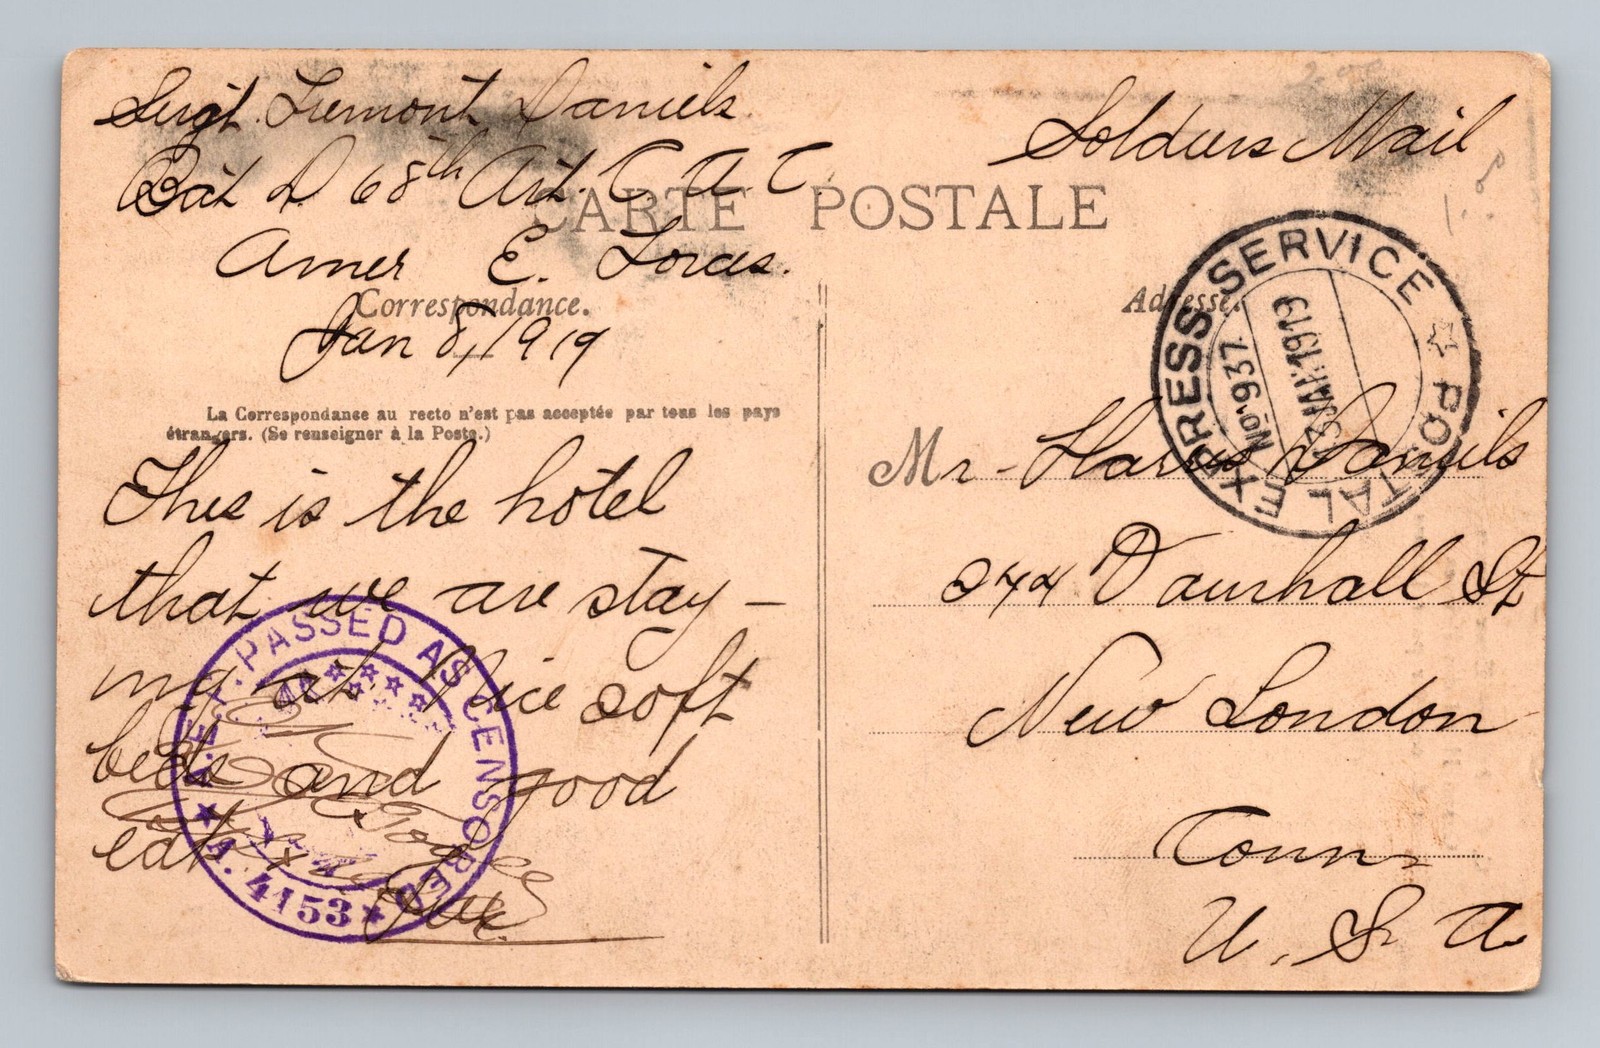 Sergt. Tremont Daniels
Bat D 68th Art. C. A. C.
Amer E. Forces.
Jan 8, 1919
Soldiers Mail
CARTE POSTALE
Correspondance.
Adresse.
La Correspondance au recto n'est pas acceptée par tous les pays
étrangers. (Se renseigner à la Poste.)
This is the hotel
that we are stay-
ing at Nice soft
beds and good
eats
A.E.F. PASSED AS CENSORED
A. 4153
POSTAL EXPRESS SERVICE
No 937.
JAN 1919
Mr - Harris Daniels
244 Vauxhall St
New London
Conn
U. S. A